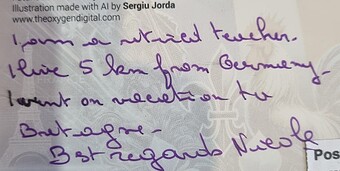 Illustration made with AI by Sergiu Jorda
www.theoxygendigital.com
I am a retired teacher.
I live 5 km from Germany.
I went on vacation to
Bretagne.
Best regards Nicole
Pos